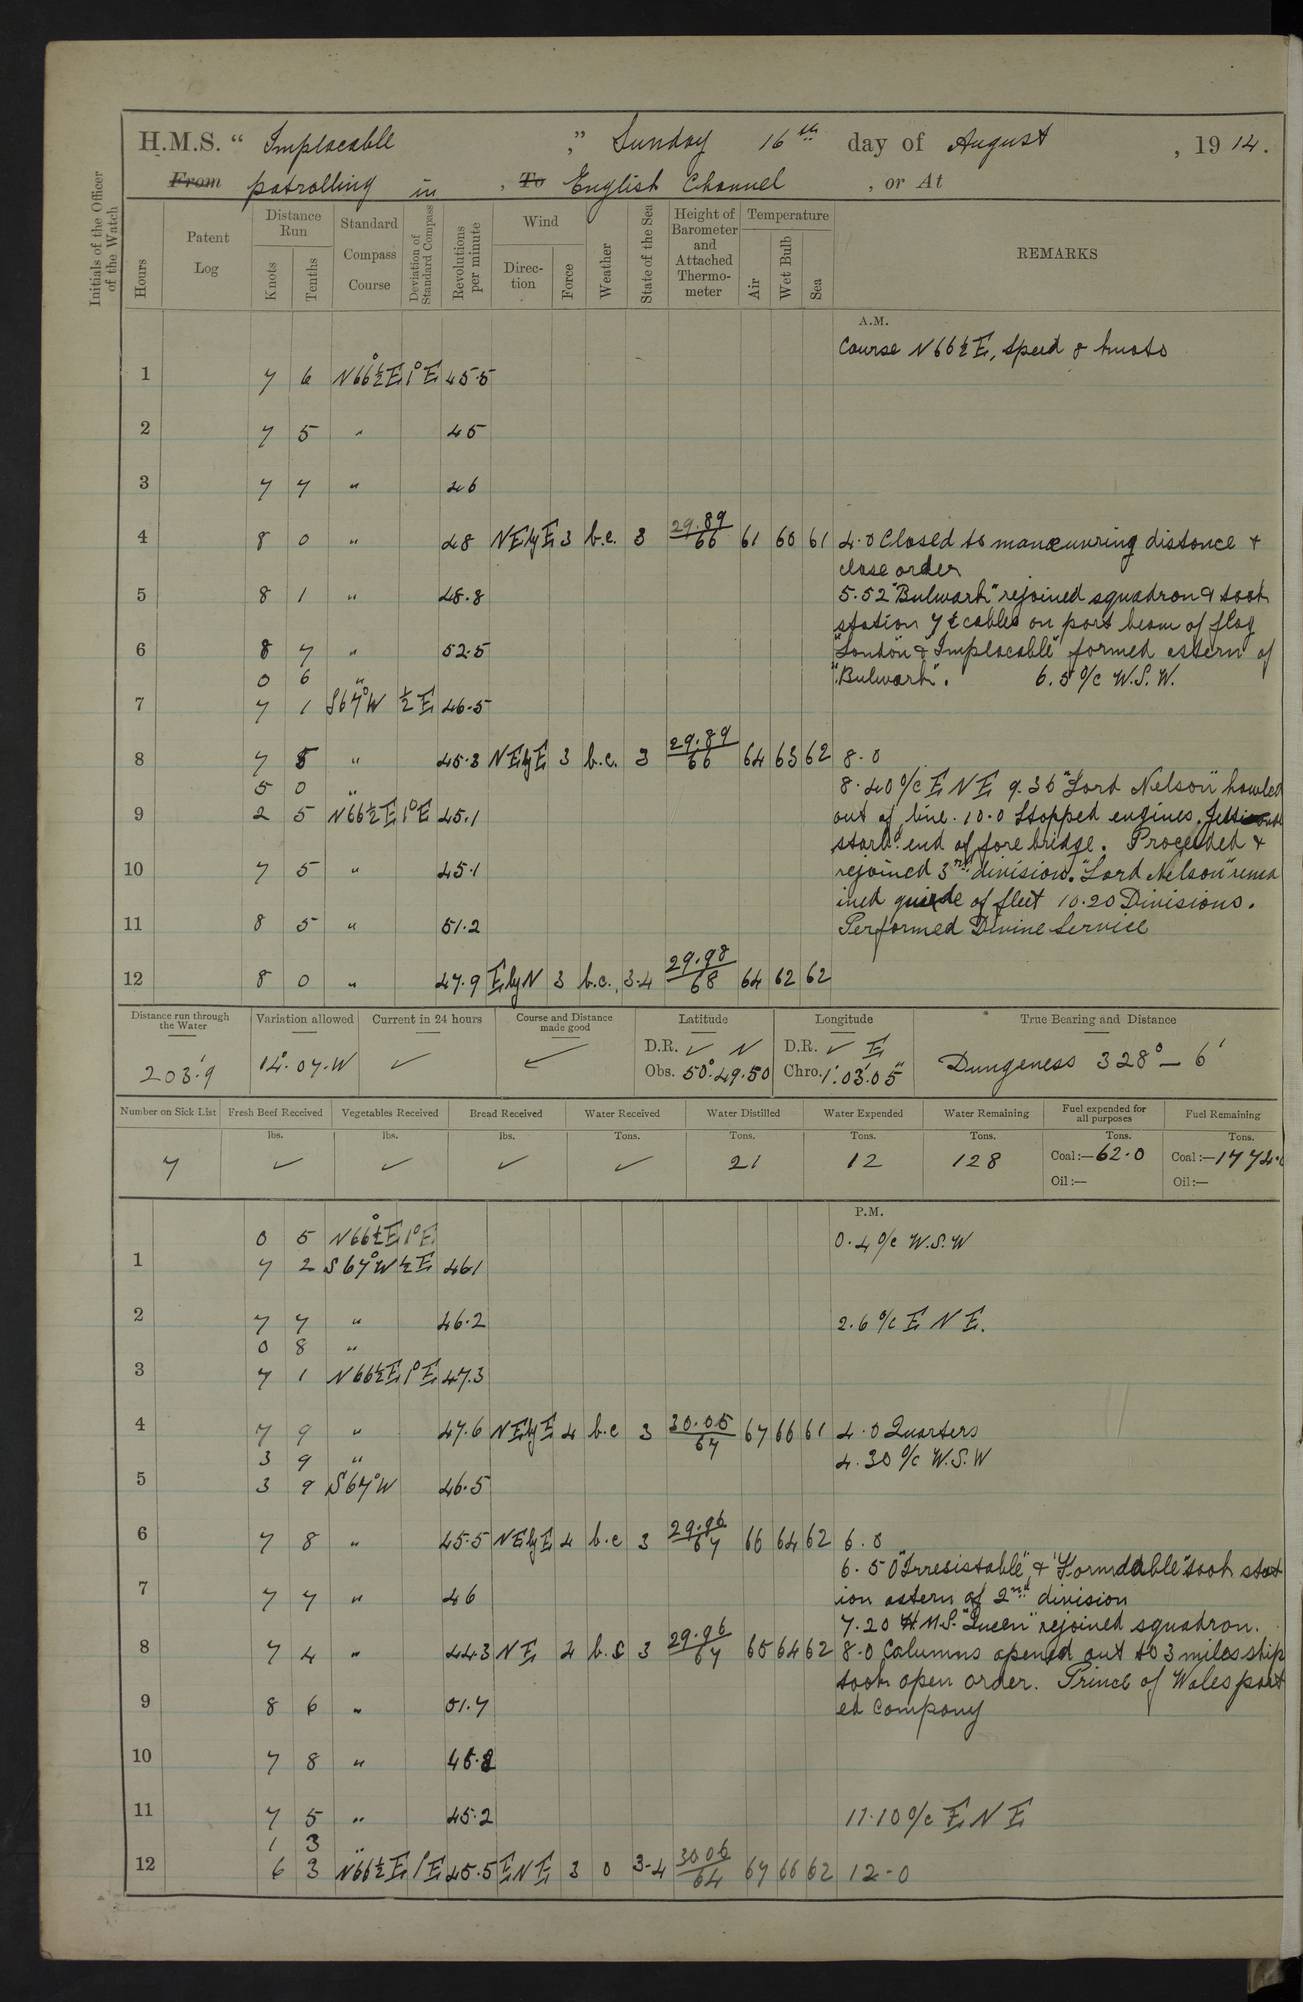 H.M.S. " Implacable ," Sunday 16th day of August , 1914.
From patrolling in , To English Channel , or At
Initials of the Officer of the Watch
Hours
Patent Log
Distance Run
Knots
Tenths
Standard Compass Course
Deviation of Standard Compass
Revolutions per minute
Wind
Direction
Force
Weather
State of the Sea
Height of Barometer and Attached Thermometer
Temperature
Air
Wet Bulb
Sea
REMARKS
A.M.
Course N66½E, Speed 8 knots
1 7 6 N66½°E 1°E 45.5
2 7 5 " 45
3 7 7 " 46
4 8 0 " 48 NEbyE 3 b.c. 3 29.89/66 61 60 61 4.0 Closed to manœuvring distance &
close order
5 8 1 " 48.8 5.52 "Bulwark" rejoined squadron & took
station 7½ cables on port beam of flag
6 8 7 " 52.5 "London" & "Implacable" formed astern of
0 6 " "Bulwark". 6.5 o/c W.S.W.
7 7 1 S67°W ½E 46.5
8 7 5 " 45.3 NEbyE 3 b.c. 3 29.89/66 64 63 62 8.0
5 0 " 8.40 o/c ENE 9.36 "Lord Nelson" hawled
9 2 5 N66½E 1°E 45.1 out of line. 10.0 Stopped engines.
starbd end of fore bridge. Proceeded &
10 7 5 " 45.1 rejoined 3rd division. "Lord Nelson" resma
ined guide of fleet 10.20 Divisions.
11 8 5 " 51.2 Performed Divine Service
12 8 0 " 47.9 EbyN 3 b.c. 3-4 29.98/68 64 62 62
Distance run through the Water
Variation allowed
Current in 24 hours
Course and Distance made good
Latitude
Longitude
True Bearing and Distance
D.R. ✓ N D.R. ✓ E
203.9 14°.07.W ✓ ✓ Obs. 50°.49.50 Chro. 1°.03'.05" Dungeness 328° – 6'
Number on Sick List
Fresh Beef Received
Vegetables Received
Bread Received
Water Received
Water Distilled
Water Expended
Water Remaining
Fuel expended for all purposes
Fuel Remaining
lbs. lbs. lbs. Tons. Tons. Tons. Tons. Tons. Tons.
7 ✓ ✓ ✓ ✓ 21 12 128 Coal:—62.0 Coal:—1772.
Oil:— Oil:—
P.M.
0 5 N66½°E 1°E 0.4 o/c W.S.W
1 7 2 S67°W ½E 46.1
2 7 7 " 46.2 2.6 o/c E N E.
0 8 "
3 7 1 N66½E 1°E 47.3
4 7 9 " 47.6 NEbyE 4 b.c 3 30.05/67 67 66 61 4.0 Quarters
3 9 " 4.30 o/c W.S.W
5 3 9 S67°W 46.5
6 7 8 " 45.5 NEbyE 4 b.c 3 29.96/67 66 64 62 6.0
6.50 "Irresistable" & "Formidable" took stat
7 7 7 " 46 ion astern of 2nd division
7.20 H.M.S. "Queen" rejoined squadron.
8 7 4 " 44.3 NE 4 b.c 3 29.96/67 65 64 62 8.0 Columns opened out to 3 miles ship
took open order. Prince of Wales part
9 8 6 " 51.7 ed company
10 7 8 " 45.8
11 7 5 " 45.2 11.10 o/c E N E
1 3 "
12 6 3 N66½E 1°E 45.5 ENE 3 0 3-4 30.06/64 67 66 62 12-0